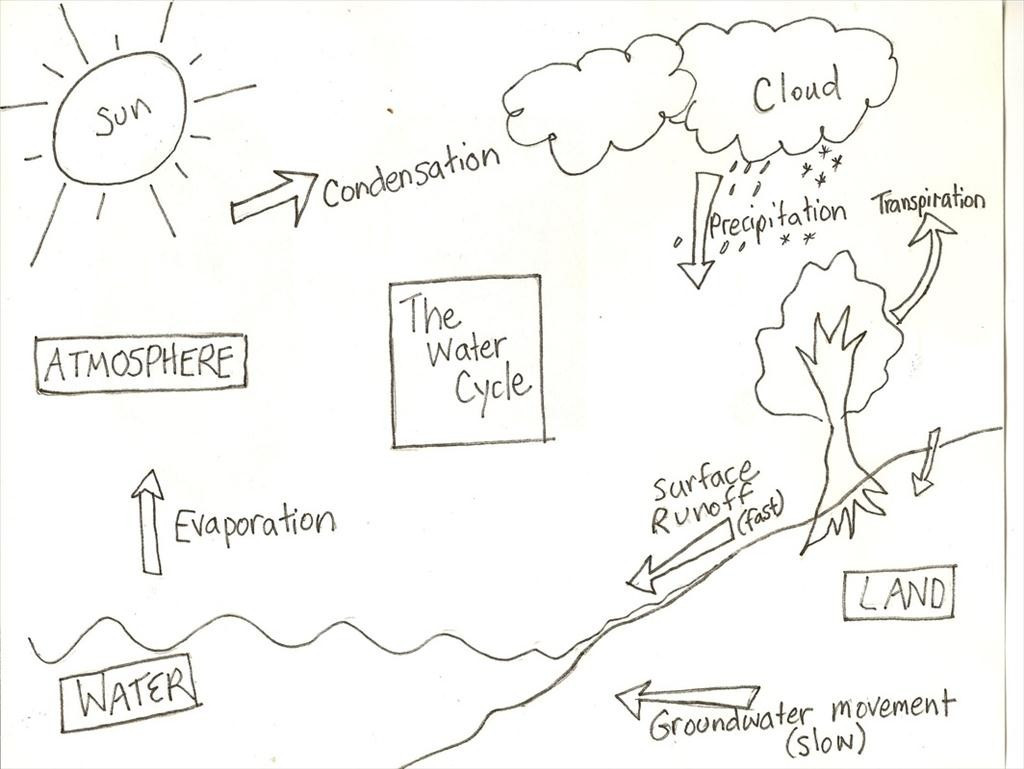 Sun
Cloud
Condensation
Precipitation
Transpiration
ATMOSPHERE
The
Water
Cycle
Surface
Runoff
(fast)
Evaporation
LAND
WATER
Groundwater movement
(slow)